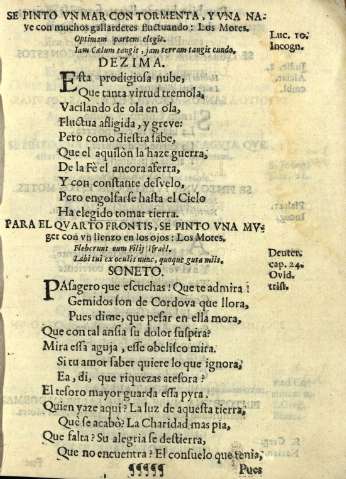 SE PINTO VN MAR CON TORMENTA, Y VNA NA-
ve con muchos gallardetes fluctuando: Los Motes.
Optimam partem elegit.
Luc. 10.
Iam Cælum tangit, jam terram tangit eundo.
Incogn.
DEZIMA.
Esta prodigiosa nube,
Que tanta virtud tremola,
Vacilando de ola en ola,
Fluctua afligida, y greve:
Pero como diestra sabe,
Que el aquilòn la haze guerra,
De la Fè el ancora aferra,
Y con constante desvelo,
Pero engolfarse hasta el Cielo
Ha elegido tomar tierra.
PARA EL QVARTO FRONTIS, SE PINTO VNA MV-
ger con vn lienzo en los ojos: Los Motes.
Fleberunt eum Filij Israël.
Deuter.
cap. 24.
Labitur ex oculis nunc, quoque guta meis.
Ovid.
trist.
SONETO.
PAsagero que escuchas! Que te admira?
Gemidos son de Cordova que llora,
Pues dime, que pesar en ella mora,
Que con tal ansia su dolor suspira?
Mira essa aguja, esse obelisco mira.
Si tu amor saber quiere lo que ignora,
Ea, di, que riquezas atesora?
El tesoro mayor guarda essa pyra.
Quien yaze aqui? La luz de aquesta tierra,
Què se acabò? La Charidad mas pia,
Que falta? Su alegria se destierra,
Que no encuentra? El consuelo que tenia,
¶¶¶¶¶
Pues